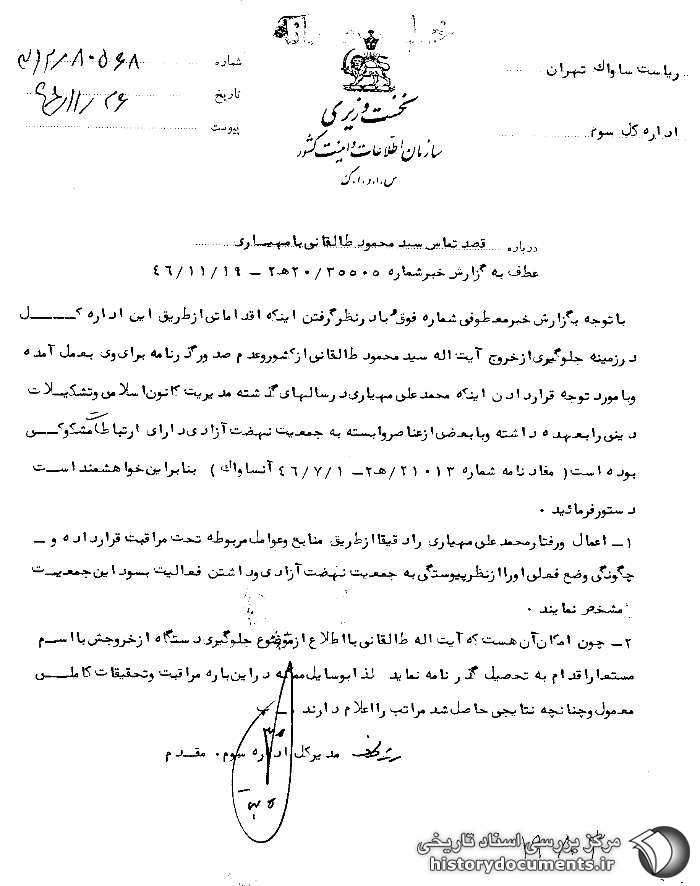 ریاست ساواك تهران
اداره كل سوم
نخست وزیری
سازمان اطلاعات و امنیت کشور
س.ا.و.ا.ک
شماره
تاریخ
پیوست
درباره قصد تماس سید محمود طالقانی با مهیاری
عطف به گزارش خبر شماره ۲۰/۳۵۵۰۵ه‍۲ – ۴۶/۱۱/۱۹
با توجه بگزارش خبر معطوفی شماره فوق و با در نظر گرفتن اینکه اقداماتی از طریق این اداره کـــل
در زمینه جلوگیری از خروج آیت اله سید محمود طالقانی از کشور و عدم صدور گذرنامه برای وی بعمل آمده
و با مورد توجه قرار دادن اینکه محمد علی مهیاری در سالهای گذشته مدیریت کانون اسلامی و تشکیلات
دینی را بعهده داشته و با بعضی از عناصر وابسته به جمعیت نهضت آزادی دارای ارتباطات مشکوکــی
بوده است ( مفاد نامه شماره ۲۱۰۱۳/ه‍۲ – ۴۶/۷/۱ آنساواك ) بنابراین خواهشمند اســت
دستور فرمائید .
۱– اعمال و رفتار محمد علی مهیاری را دقیقا از طریق منابع و عوامل مربوطه تحت مراقبت قرار داده و –
چگونگی وضع فعلی او را از نظر پیوستگی به جمعیت نهضت آزادی و داشتن فعالیت بسود این جمعیــت
مشخص نمایند .
۲– چون امکان آن هست که آیت اله طالقانی با اطلاع از موضوع جلوگیری دستگاه از خروجش با اســم
مستعار اقدام به تحصیل گذرنامه نماید لذا بوسایل ممکنه در این باره مراقبت و تحقیقات کاملــی
معمول و چنانچه نتایجی حاصل شد مراتب را اعلام دارند .
مدیر کل اداره سوم . مقدم
مرکز بررسی اسناد تاریخی
historydocuments.ir